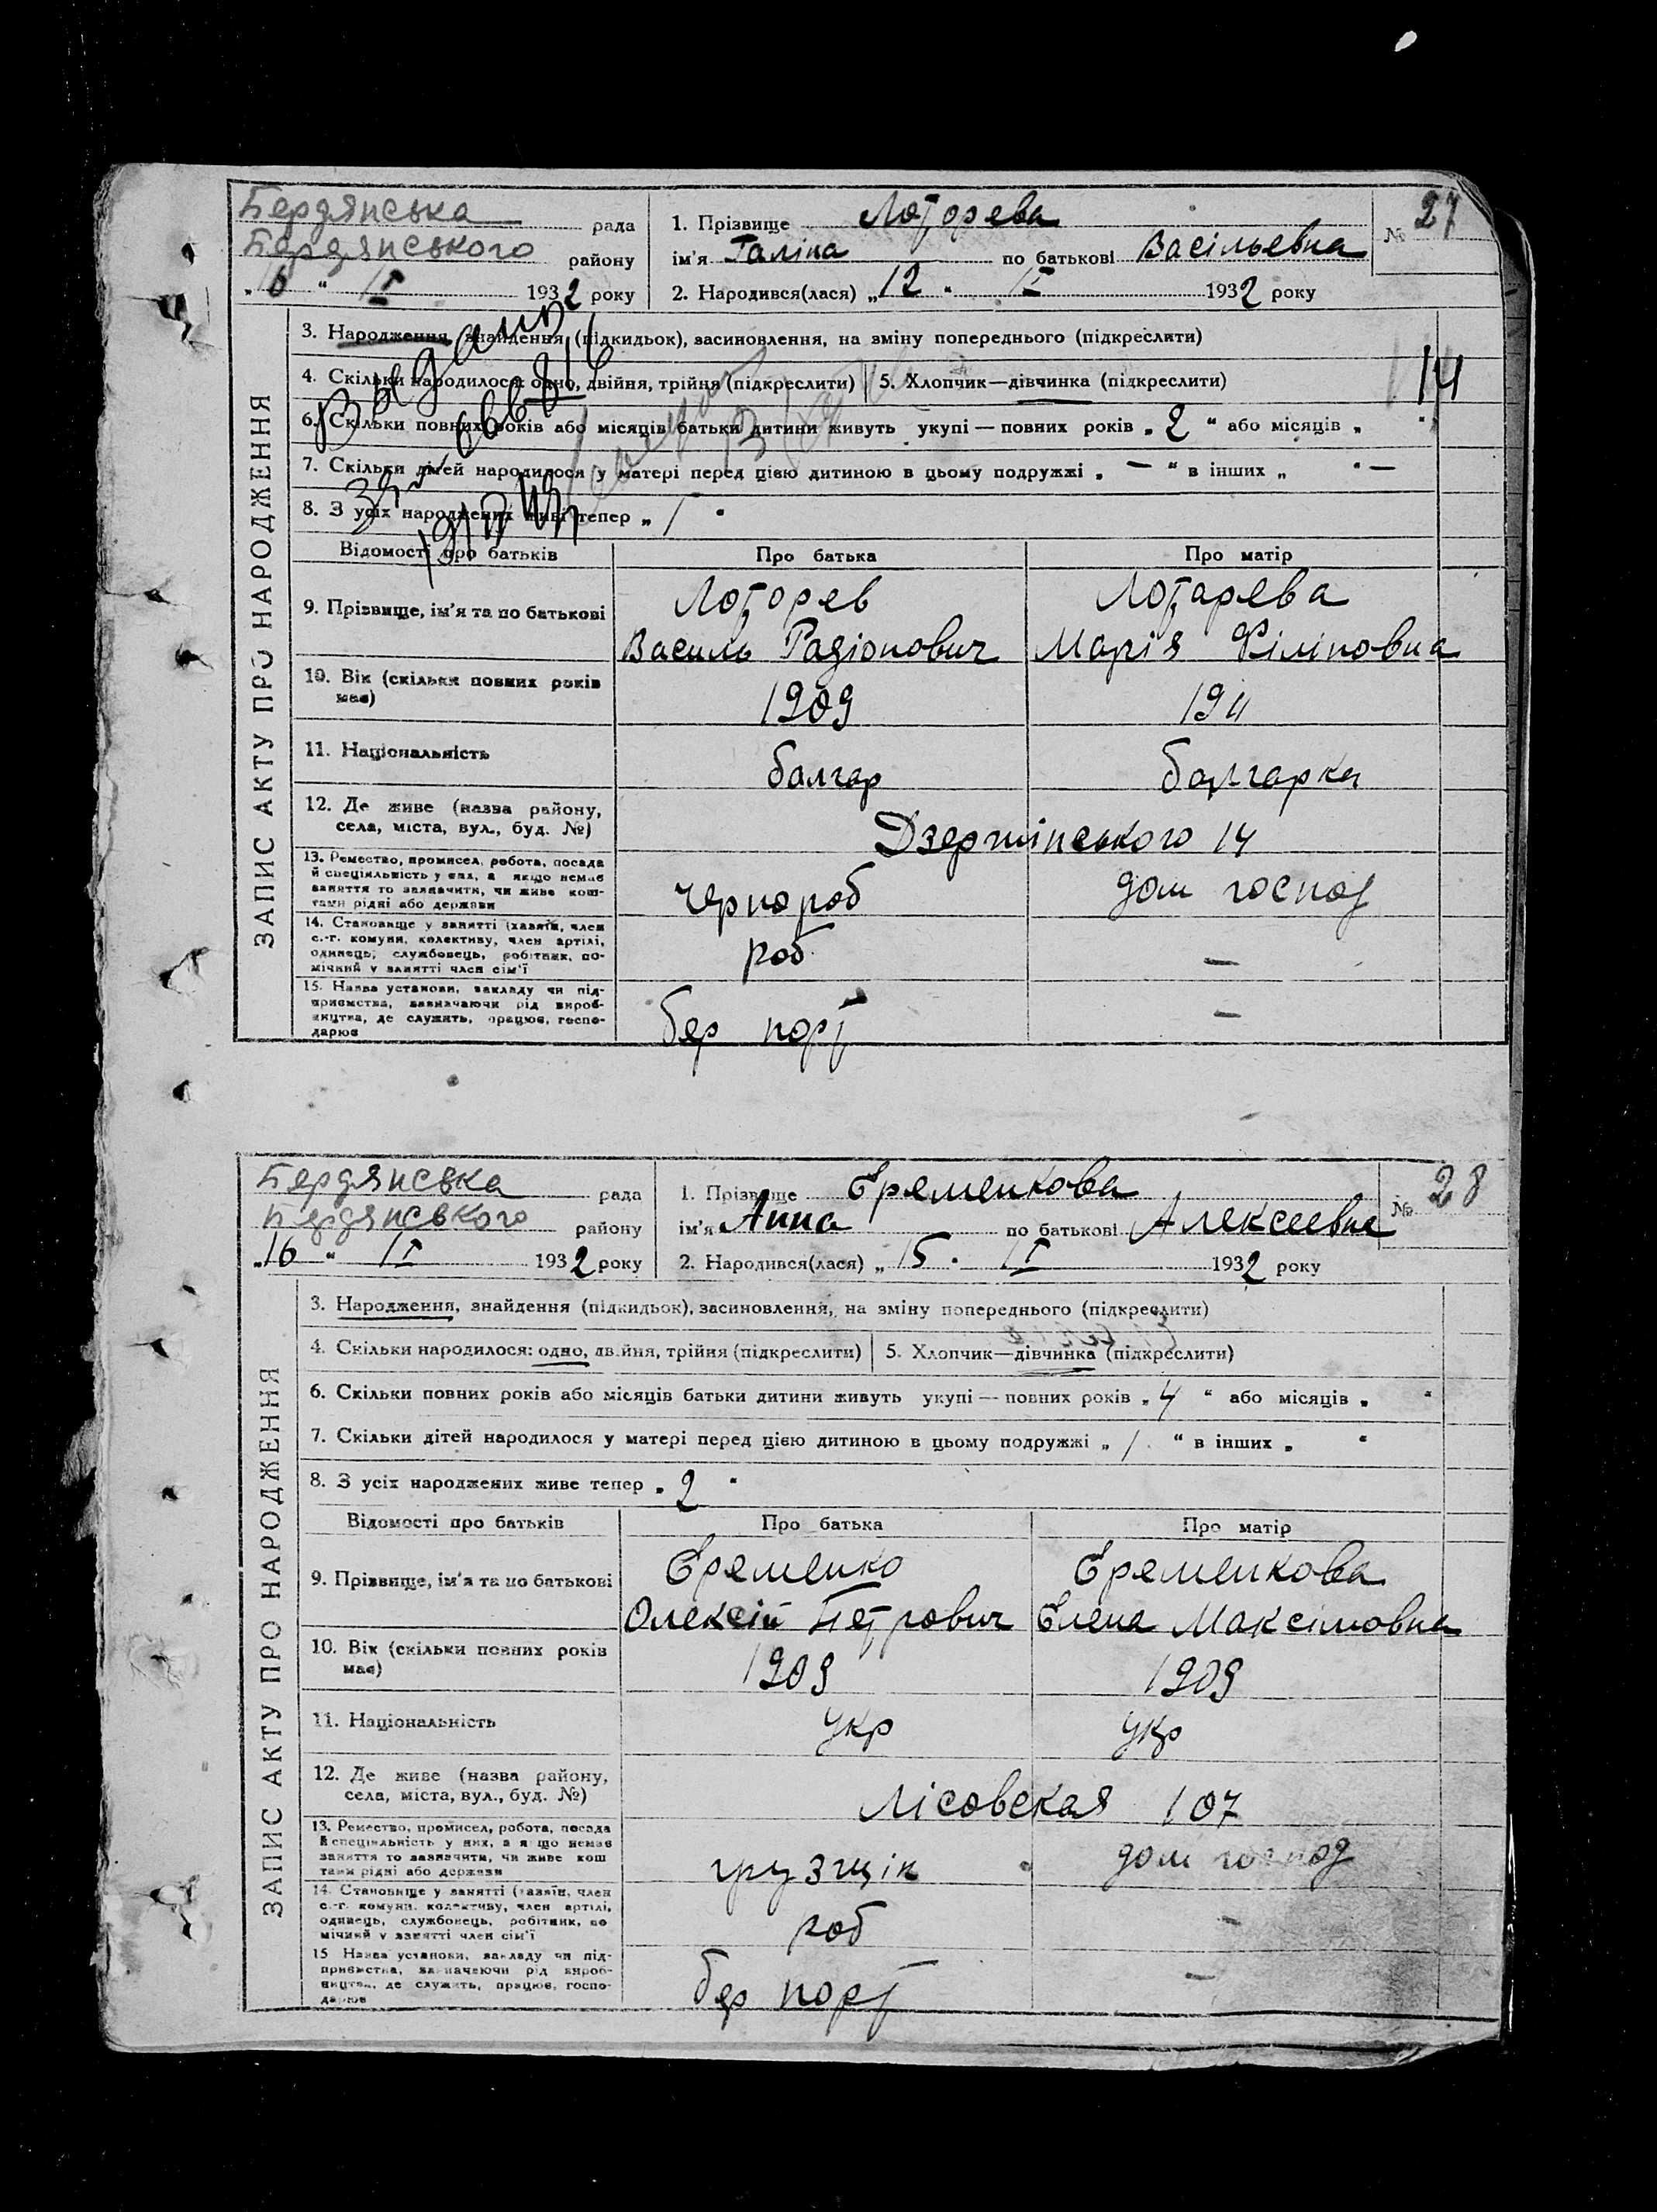 Бердянська рада
Бердянського району
„16 “ I 1932 року
1. Прізвище Лоторева
ім'я Галіна по батькові Васільевна
2. Народився(лася) „12 “ I 1932 року
№ 27
ЗАПИС АКТУ ПРО НАРОДЖЕННЯ
3. Народження, знайдення (підкидьок), засиновлення, на зміну попереднього (підкреслити)
4. Скільки народилося: одно, двійня, трійня (підкреслити) 5. Хлопчик—дівчинка (підкреслити)
14
6. Скільки повних років або місяців батьки дитини живуть укупі — повних років „ 2 “ або місяців „ “
7. Скільки дітей народилося у матері перед цією дитиною в цьому подружжі „ — “ в інших „ “ —
8. З усіх народжених живе тепер „ 1 “
Видано
Відомості про батьків Про батька Про матір
9. Прізвище, ім'я та по батькові Лоторев Лотарева
Василь Радіонович Марія Філіповна
10. Вік (скільки повних років має) 1909 1911
11. Національність болгар болгарка
12. Де живе (назва району,
села, міста, вул., буд. №) Дзержінського 14
13. Ремество, промисел, робота, посада
й спеціяльність у них, а якщо немає
заняття то зазначити, чи живе кош-
тами рідні або держави чорнороб дом господ
14. Становище у занятті (хазяїн, член
с.-г. комуни, колективу, член артілі,
одинець, службовець, робітник, по-
мічний у занятті член сім'ї роб. —
15. Назва установи, закладу чи під-
приємства, зазначаючи рід вироб-
ництва, де служить, працює, госпо-
дарює бер порт —
Бердянська рада
Бердянського району
„16 “ I 1932 року
1. Прізвище Єременкова
ім'я Анна по батькові Алексеевна
2. Народився(лася) „ 15 “ I 1932 року
№ 28
ЗАПИС АКТУ ПРО НАРОДЖЕННЯ
3. Народження, знайдення (підкидьок), засиновлення, на зміну попереднього (підкреслити)
4. Скільки народилося: одно, двійня, трійня (підкреслити) 5. Хлопчик—дівчинка (підкреслити)
6. Скільки повних років або місяців батьки дитини живуть укупі — повних років „ 4 “ або місяців „ “
7. Скільки дітей народилося у матері перед цією дитиною в цьому подружжі „ 1 “ в інших „ “
8. З усіх народжених живе тепер „ 2 “
Відомості про батьків Про батька Про матір
9. Прізвище, ім'я та по батькові Єременко Єременкова
Олексій Петрович Єлена Максімовна
10. Вік (скільки повних років
має) 1909 1909
11. Національність укр укр
12. Де живе (назва району,
села, міста, вул., буд. №) Лісовская 107
13. Ремество, промисел, робота, посада
й спеціяльність у них, а якщо немає
заняття то зазначити, чи живе кош
тами рідні або держави грузщік дом господ
14. Становище у занятті (хазяїн, член
с.-г. комуни, колективу, член артілі,
одинець, службовець, робітник, по
мічний у занятті член сім'ї роб —
15 Назва установи, закладу чи під-
приємства, зазначаючи рід вироб-
ництва, де служить, працює, госпо-
дарює бер порт —